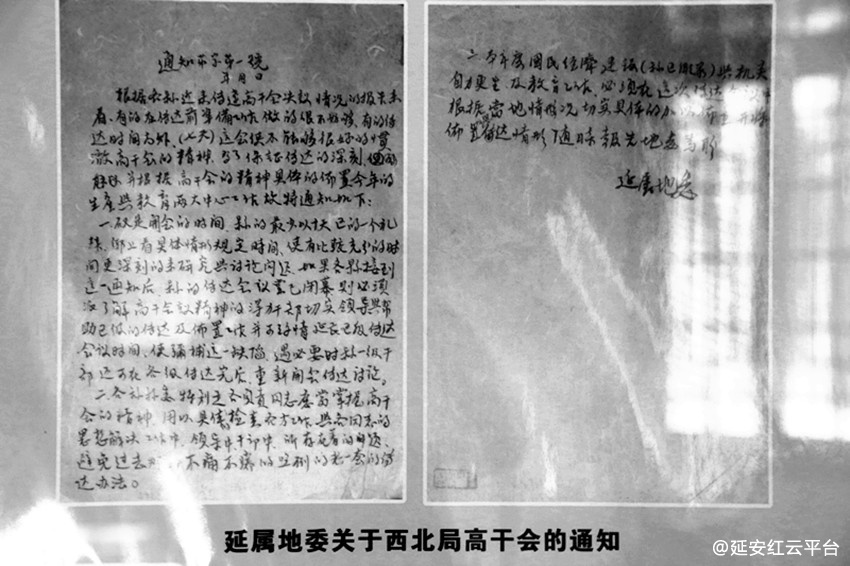 通知 第一号
年 月 日
根据各县近来传达高干会决议情况的报告来
看,有的在传达前准备工作做的很不好,有的传
达时间 (七天)这会使不能够很好的贯
澈高干会的精神,为了保证传达的深刻
并根据高干会的精神具体的佈置今年的
生产与教育两大中心工作故特通知如下:
一 开会的时间,县的最少以十天 一个礼
拜,乡上看具体情形规定时间,使有比较充分的时
间更深刻的来研究与讨论问题,如果各县接到
这一通知后,县的传达会议业已闭幕则必须
派了解高干会议精神的得力干部切实领导与帮
助区级的传达及佈置工作并 情延长区级传达
会议时间,使弥补这一缺陷,遇必要时县一级干
部还可在各级传达完后,重新开会传达讨论。
二 各县 委特别是各负责同志应当掌握高干
会的精神,用以具体检查各方工作,与各同志的
思想解决工作中,领导中,干部中,所存在着的问题,
避免过去 不痛不痒的 的老一套的传
达办法。
三 今年度国民经济建设( )与机关
自力更生及教育工作,必须在这次传达
根据当地情况切实具体的
佈置传达情形随时报告地委为盼
延属地委
延属地委关于西北局高干会的通知
@延安红云平台